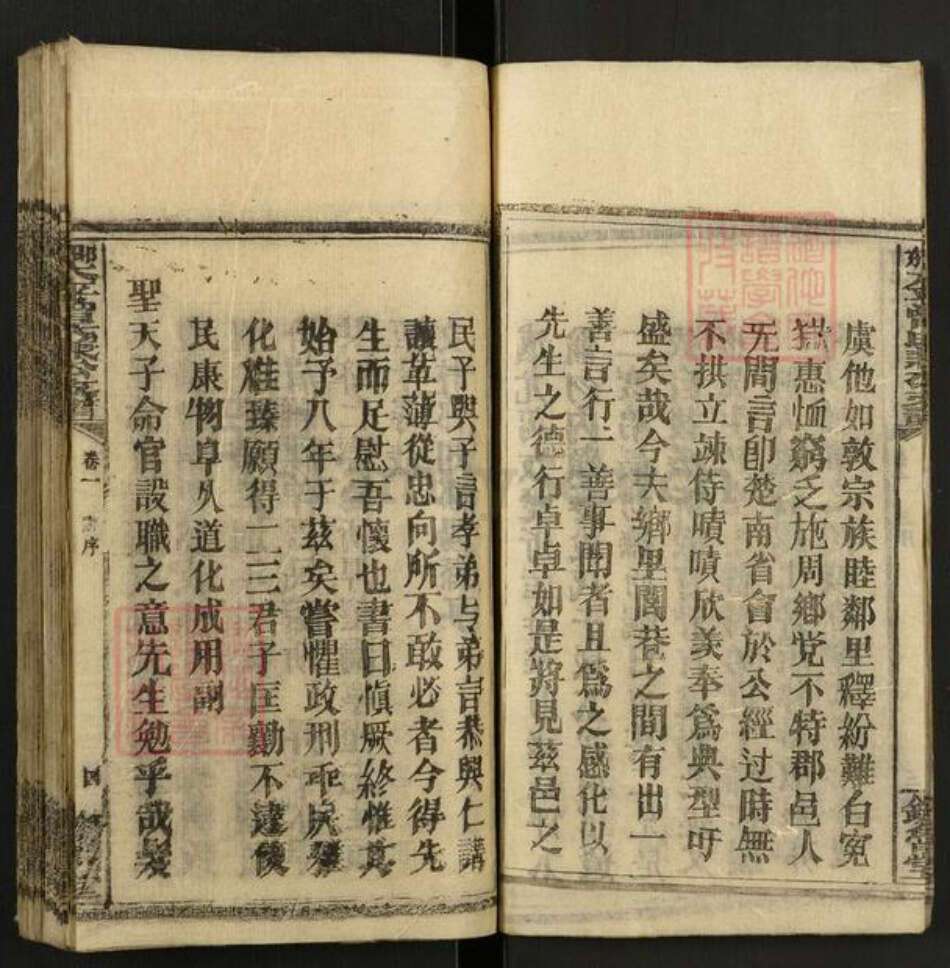 虞他如敦宗族睦鄰里釋紛難白冤
獄惠恤窮乏施周鄉党不特郡邑人
无間言卽楚南省會於公經过時無
不拱立竦侍嘖嘖欣羨奉爲典型吁
盛矣哉今夫鄉里閭巷之間有出一
善言行一善事聞者且爲之感化以
先生之德行卓卓如是將見茲邑之
民子與子言孝弟与弟言恭興仁講
讓革薄從忠向所不敢必者今得先
生而足慰吾懷也書曰慎厥終惟其
始予八年于茲矣嘗懼政刑乖戾
化維臻願得一二三君子匡勷不逮俾
民康物阜久道化成用副
聖天子命官設職之意先生勉乎哉
卷一
序
四